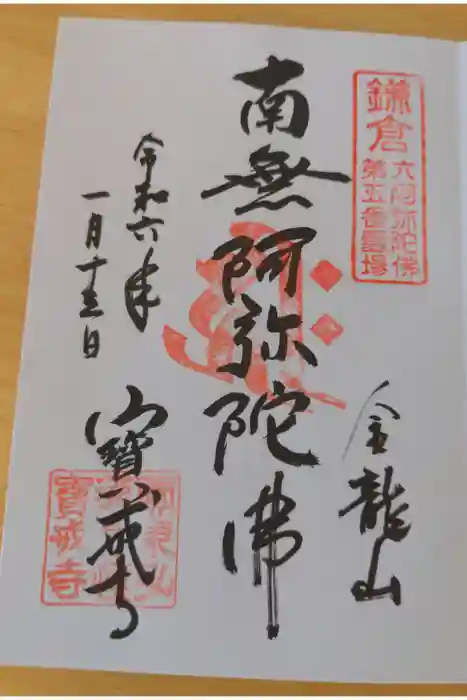 鎌倉
六阿弥陀佛
第五番霊場
金龍山
南無阿弥陀佛
令和六年
一月十三日
寶戒寺
寶戒寺